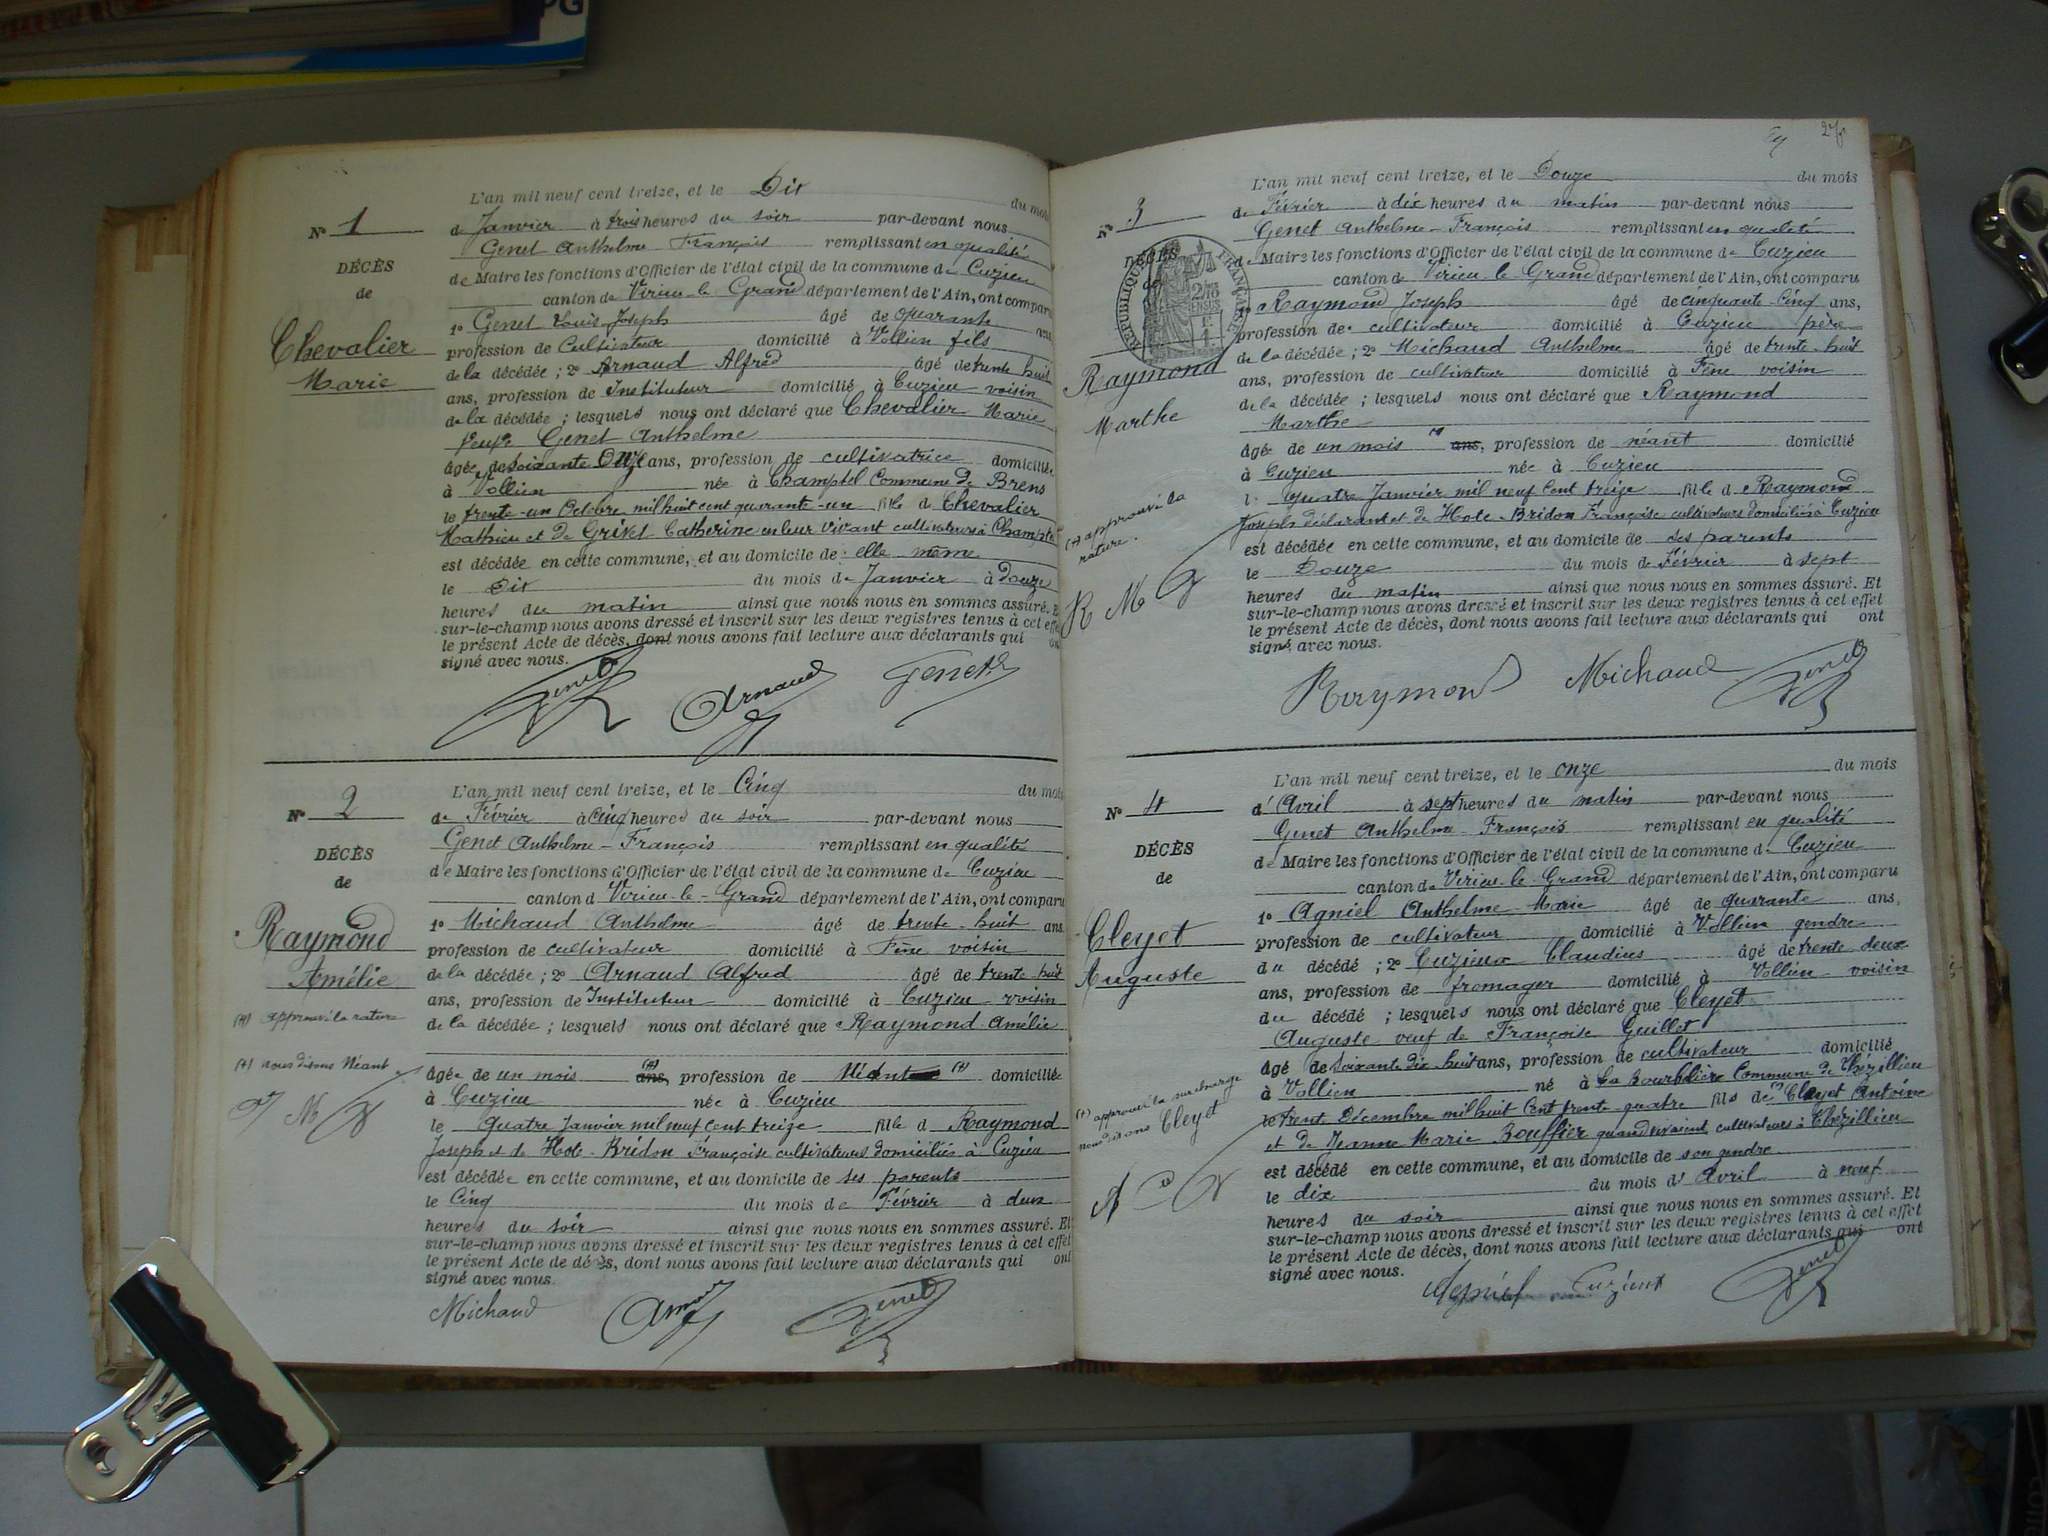 PG
L'an mil neuf cent treize, et le Dix du mois
N° 1
de Janvier à trois heures du soir par-devant nous
Genet Anthelme François remplissant en qualité
DÉCÈS
de Maire les fonctions d'Officier de l'état civil de la commune de Cuzieu
de
canton de Virieu-le-Grand département de l'Ain, ont comparu
Chevalier
Marie
1° Genet Louis-Joseph âgé de quarante ans
profession de Cultivateur domicilié à Vollien fils
de la décédée ; 2° Arnaud Alfred âgé de trente huit
ans, profession de Instituteur domicilié à Cuzieu voisin
de la décédée ; lesquels nous ont déclaré que Chevalier Marie
veuve Genet Anthelme
âgée de soixante onze ans, profession de cultivatrice domiciliée
à Vollien née à Champtel Commune de Brens
le trente-un Octobre mil huit cent quarante-un fille d Chevalier
Mathieu et de Grivet Catherine en leur vivant cultivateurs à Champtel
est décédée en cette commune, et au domicile de elle même
le Dix du mois de Janvier à douze
heures du matin ainsi que nous nous en sommes assuré. Et
sur-le-champ nous avons dressé et inscrit sur les deux registres tenus à cet effet
le présent Acte de décès, dont nous avons fait lecture aux déclarants qui ont
signé avec nous.
Genet Arnaud Genet
L'an mil neuf cent treize, et le Cinq du mois
N° 2
de Février à cinq heures du soir par-devant nous
Genet Anthelme-François remplissant en qualité
DÉCÈS
de Maire les fonctions d'Officier de l'état civil de la commune de Cuzieu
de
canton d Virieu-le-Grand département de l'Ain, ont comparu
Raymond
Amélie
1° Michaud Anthelme âgé de trente-huit ans
profession de cultivateur domicilié à voisin
de la décédée ; 2° Arnaud Alfred âgé de trente huit
ans, profession de Instituteur domicilié à Cuzieu voisin
de la décédée ; lesquels nous ont déclaré que Raymond Amélie
approuvé la rature
nous disons Néant
âgée de un mois ans, profession de Néant domiciliée
à Cuzieu née à Cuzieu
le quatre Janvier mil neuf cent treize fille d Raymond
Joseph et de Hote-Bridon Françoise cultivateurs domiciliés à Cuzieu
est décédée en cette commune, et au domicile de ses parents
le Cinq du mois de Février à deux
heures du soir ainsi que nous nous en sommes assuré. Et
sur-le-champ nous avons dressé et inscrit sur les deux registres tenus à cet effet
le présent Acte de décès, dont nous avons fait lecture aux déclarants qui ont
signé avec nous.
Michaud Genet
L'an mil neuf cent treize, et le Douze du mois
N° 3
de Février à dix heures du matin par-devant nous
Genet Anthelme-François remplissant en qualité
DÉCÈS
de Maire les fonctions d'Officier de l'état civil de la commune de Cuzieu
canton de Virieu-le-Grand département de l'Ain, ont comparu
RÉPUBLIQUE FRANÇAISE
Raymond
Marthe
1° Raymond Joseph âgé de cinquante-cinq ans,
profession de cultivateur domicilié à Cuzieu père
de la décédée ; 2° Michaud Anthelme âgé de trente-huit
ans, profession de cultivateur domicilié à voisin
de la décédée ; lesquels nous ont déclaré que Raymond
Marthe
âgée de un mois ans, profession de néant domicilié
à Cuzieu née à Cuzieu
approuvé la
rature.
R M G
l quatre Janvier mil neuf cent treize fille d Raymond
Joseph déclarant et de Hote-Bridon Françoise cultivateurs domiciliés à Cuzieu
est décédée en cette commune, et au domicile de ses parents
le Douze du mois de Février à sept
heures du matin ainsi que nous nous en sommes assuré. Et
sur-le-champ nous avons dressé et inscrit sur les deux registres tenus à cet effet
le présent Acte de décès, dont nous avons fait lecture aux déclarants qui ont
signé avec nous.
Raymond Michaud Genet
L'an mil neuf cent treize, et le onze du mois
N° 4
d'Avril à sept heures du matin par-devant nous
Genet Anthelme-François remplissant en qualité
DÉCÈS
de Maire les fonctions d'Officier de l'état civil de la commune de Cuzieu
de
canton de Virieu-le-Grand département de l'Ain, ont comparu
Cleyet
Auguste
1° Agniel Anthelme-Marie âgé de quarante ans,
profession de cultivateur domicilié à Vollien gendre
du décédé ; 2° Cuzieux Claudius âgé de trente deux
ans, profession de fromager domicilié à Vollien voisin
du décédé ; lesquels nous ont déclaré que Cleyet
Auguste veuf de Françoise Guillet
âgé de soixante dix huit ans, profession de cultivateur domicilié
à Vollien né à La Bourbelière Commune de Thézillieu
approuvé la surcharge
nous disons Cleyet
le trente Décembre mil huit cent trente-quatre fils de Cleyet Antoine
et de Jeanne Marie Bouffier quand vivaient cultivateurs à Thézillieu
est décédé en cette commune, et au domicile de son gendre
le dix du mois d'Avril à neuf
heures du soir ainsi que nous nous en sommes assuré. Et
sur-le-champ nous avons dressé et inscrit sur les deux registres tenus à cet effet
le présent Acte de décès, dont nous avons fait lecture aux déclarants qui ont
signé avec nous.
Agniel Cuzieux Genet